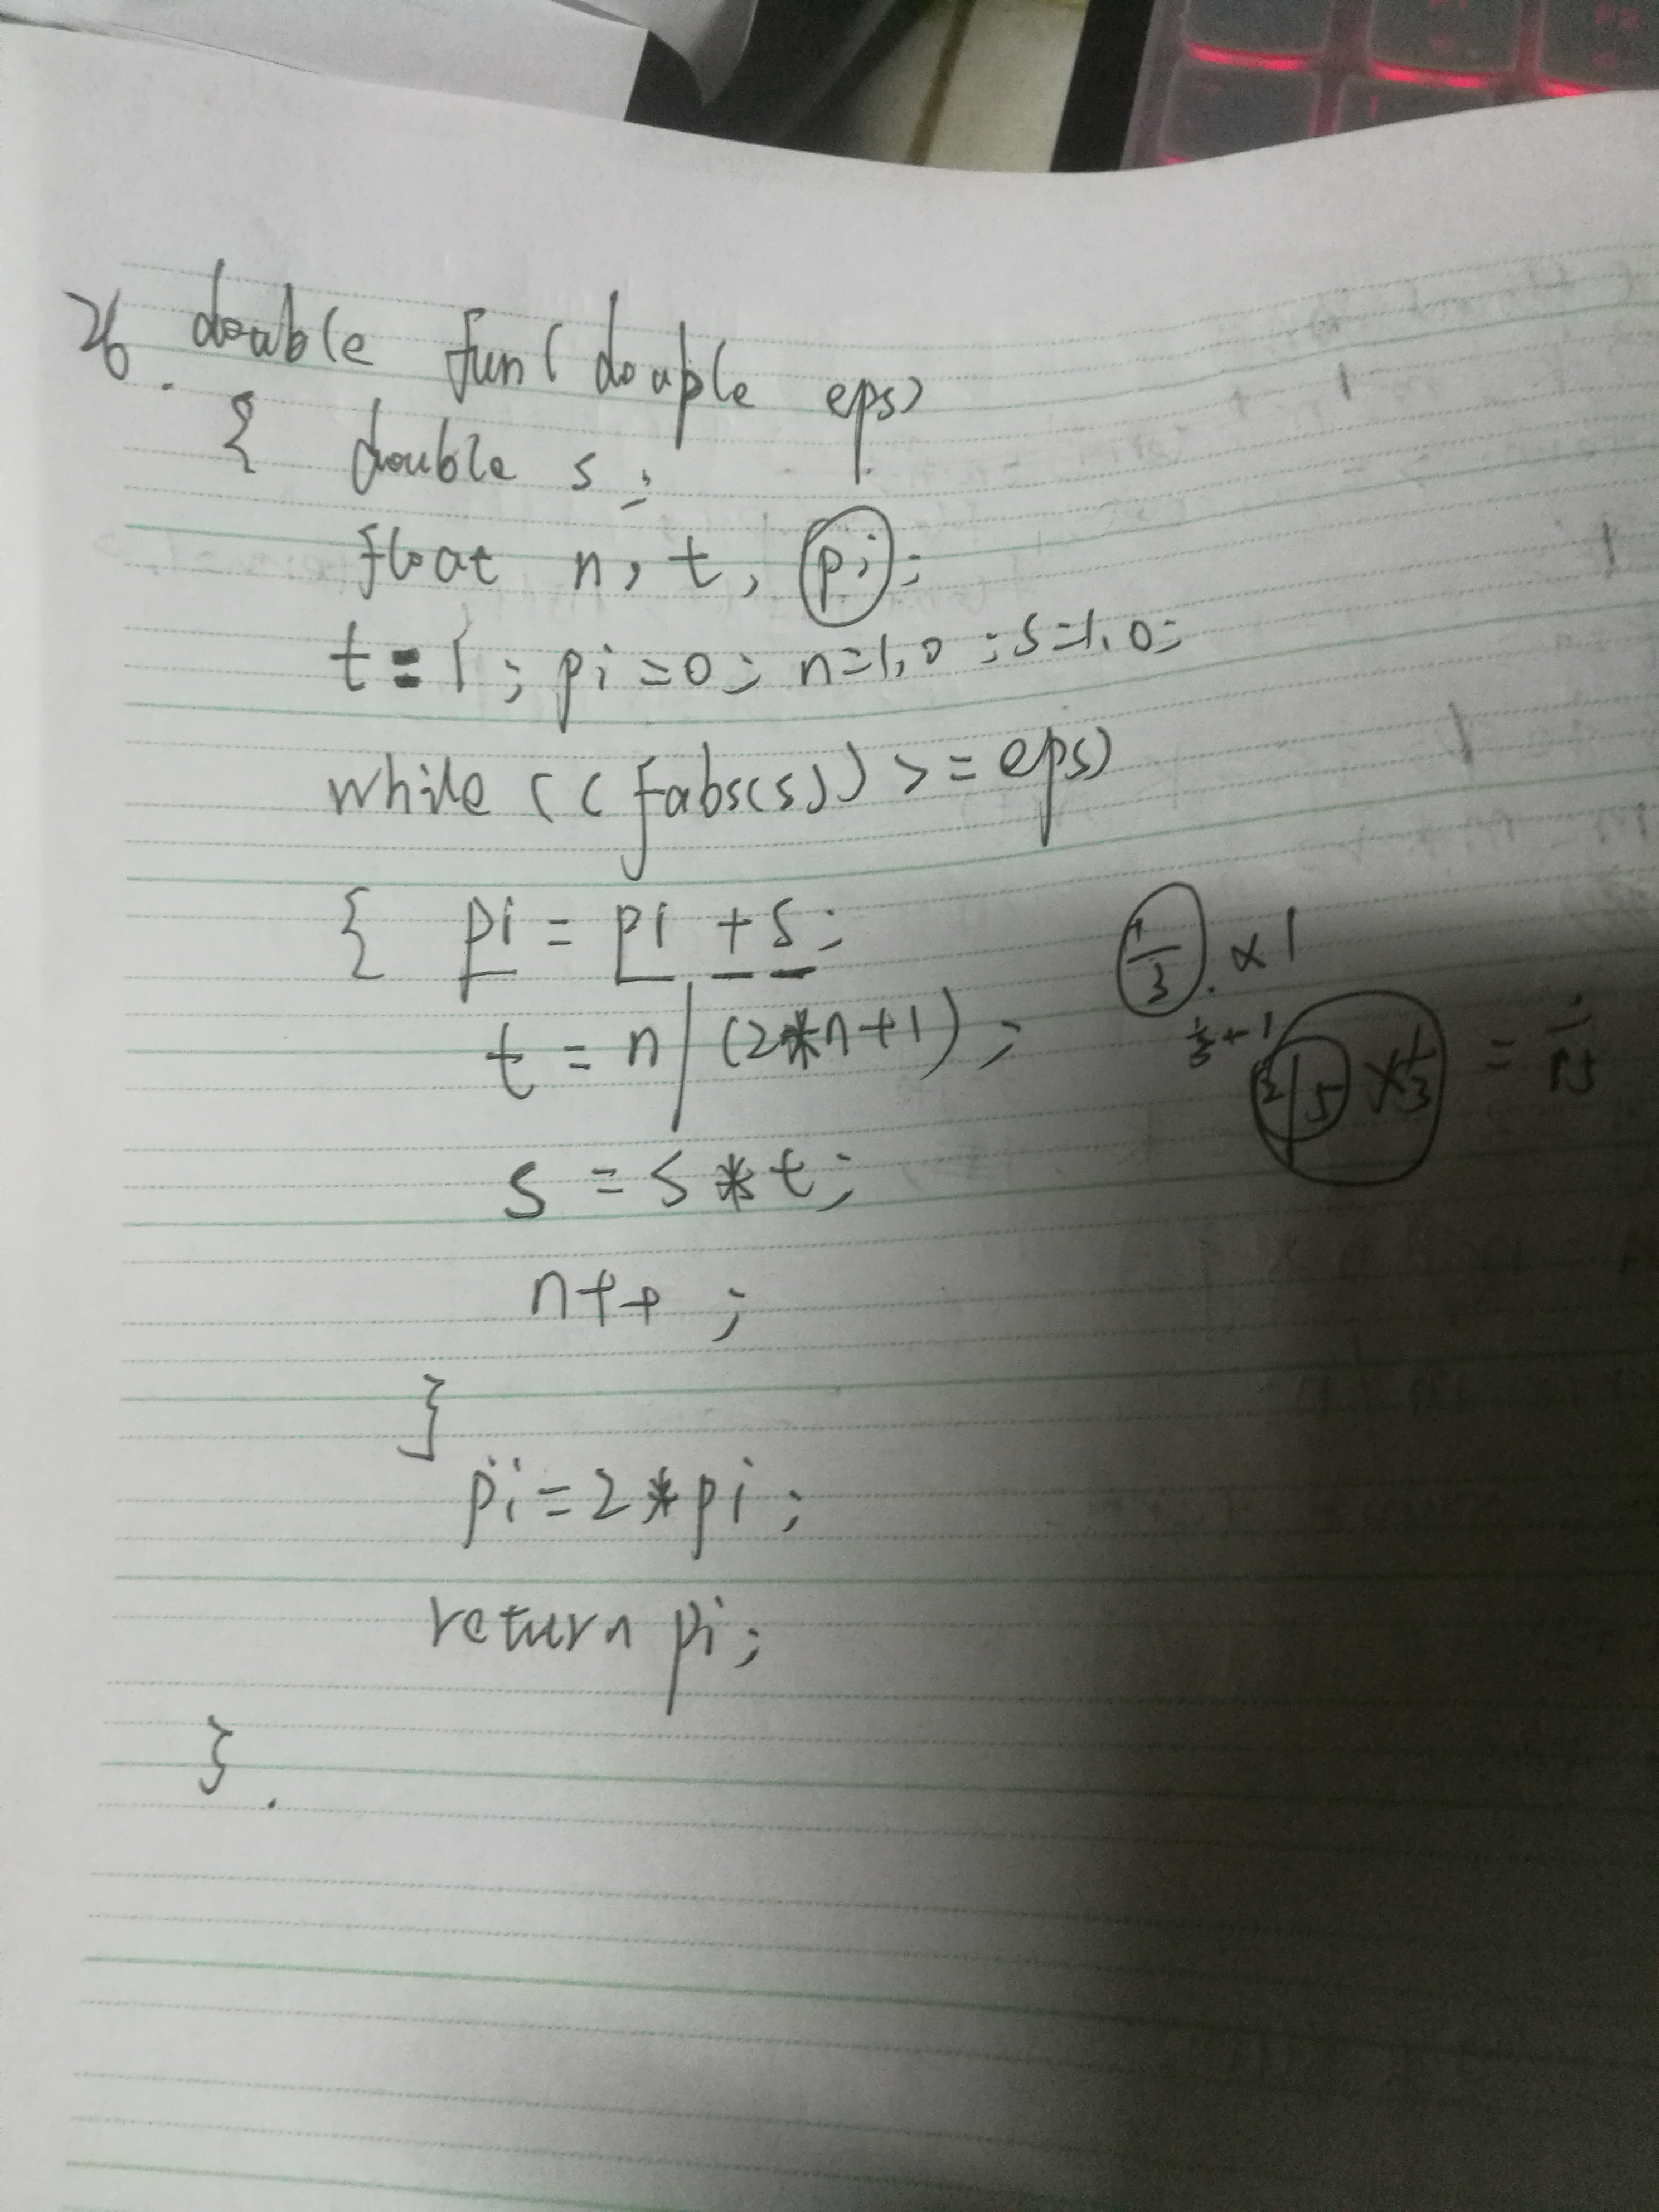 26. double fun(double eps)
{ double s;
float n, t, pi;
t=1; pi=0; n=1.0; s=1.0;
while((fabs(s))>=eps)
{ pi = pi + s;
t = n/(2*n+1);
s = s*t;
n++;
}
pi=2*pi;
return pi;
}.
1/3 × 1
1/3+1
2/5 × 1/3 =